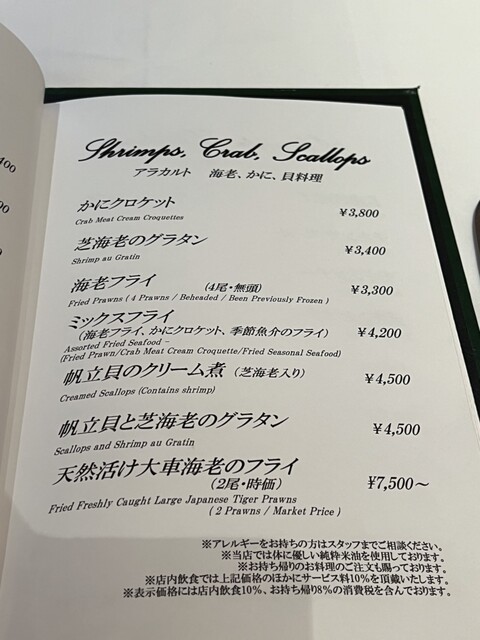 Shrimps, Crab, Scallops
アラカルト 海老、かに、貝料理
かにクロケット ¥3,800
Crab Meat Cream Croquettes
芝海老のグラタン ¥3,400
Shrimp au Gratin
海老フライ (4尾・無頭) ¥3,300
Fried Prawns ( 4 Prawns / Beheaded / Been Previously Frozen )
ミックスフライ
(海老フライ、かにクロケット、季節魚介のフライ) ¥4,200
Assorted Fried Seafood –
(Fried Prawn/Crab Meat Cream Croquette/Fried Seasonal Seafood)
帆立貝のクリーム煮 (芝海老入り) ¥4,500
Creamed Scallops (Contains shrimp)
帆立貝と芝海老のグラタン ¥4,500
Scallops and Shrimp au Gratin
天然活け大車海老のフライ
(2尾・時価) ¥7,500～
Fried Freshly Caught Large Japanese Tiger Prawns
( 2 Prawns / Market Price )
※アレルギーをお持ちの方はスタッフまでご相談ください。
※当店では体に優しい純粋米油を使用しております。
※お持ち帰りのお料理のご注文も賜っております。
※店内飲食では上記価格のほかにサービス料10%を頂戴いたします。
※表示価格には店内飲食10%、お持ち帰り8%の消費税を含んでおります。